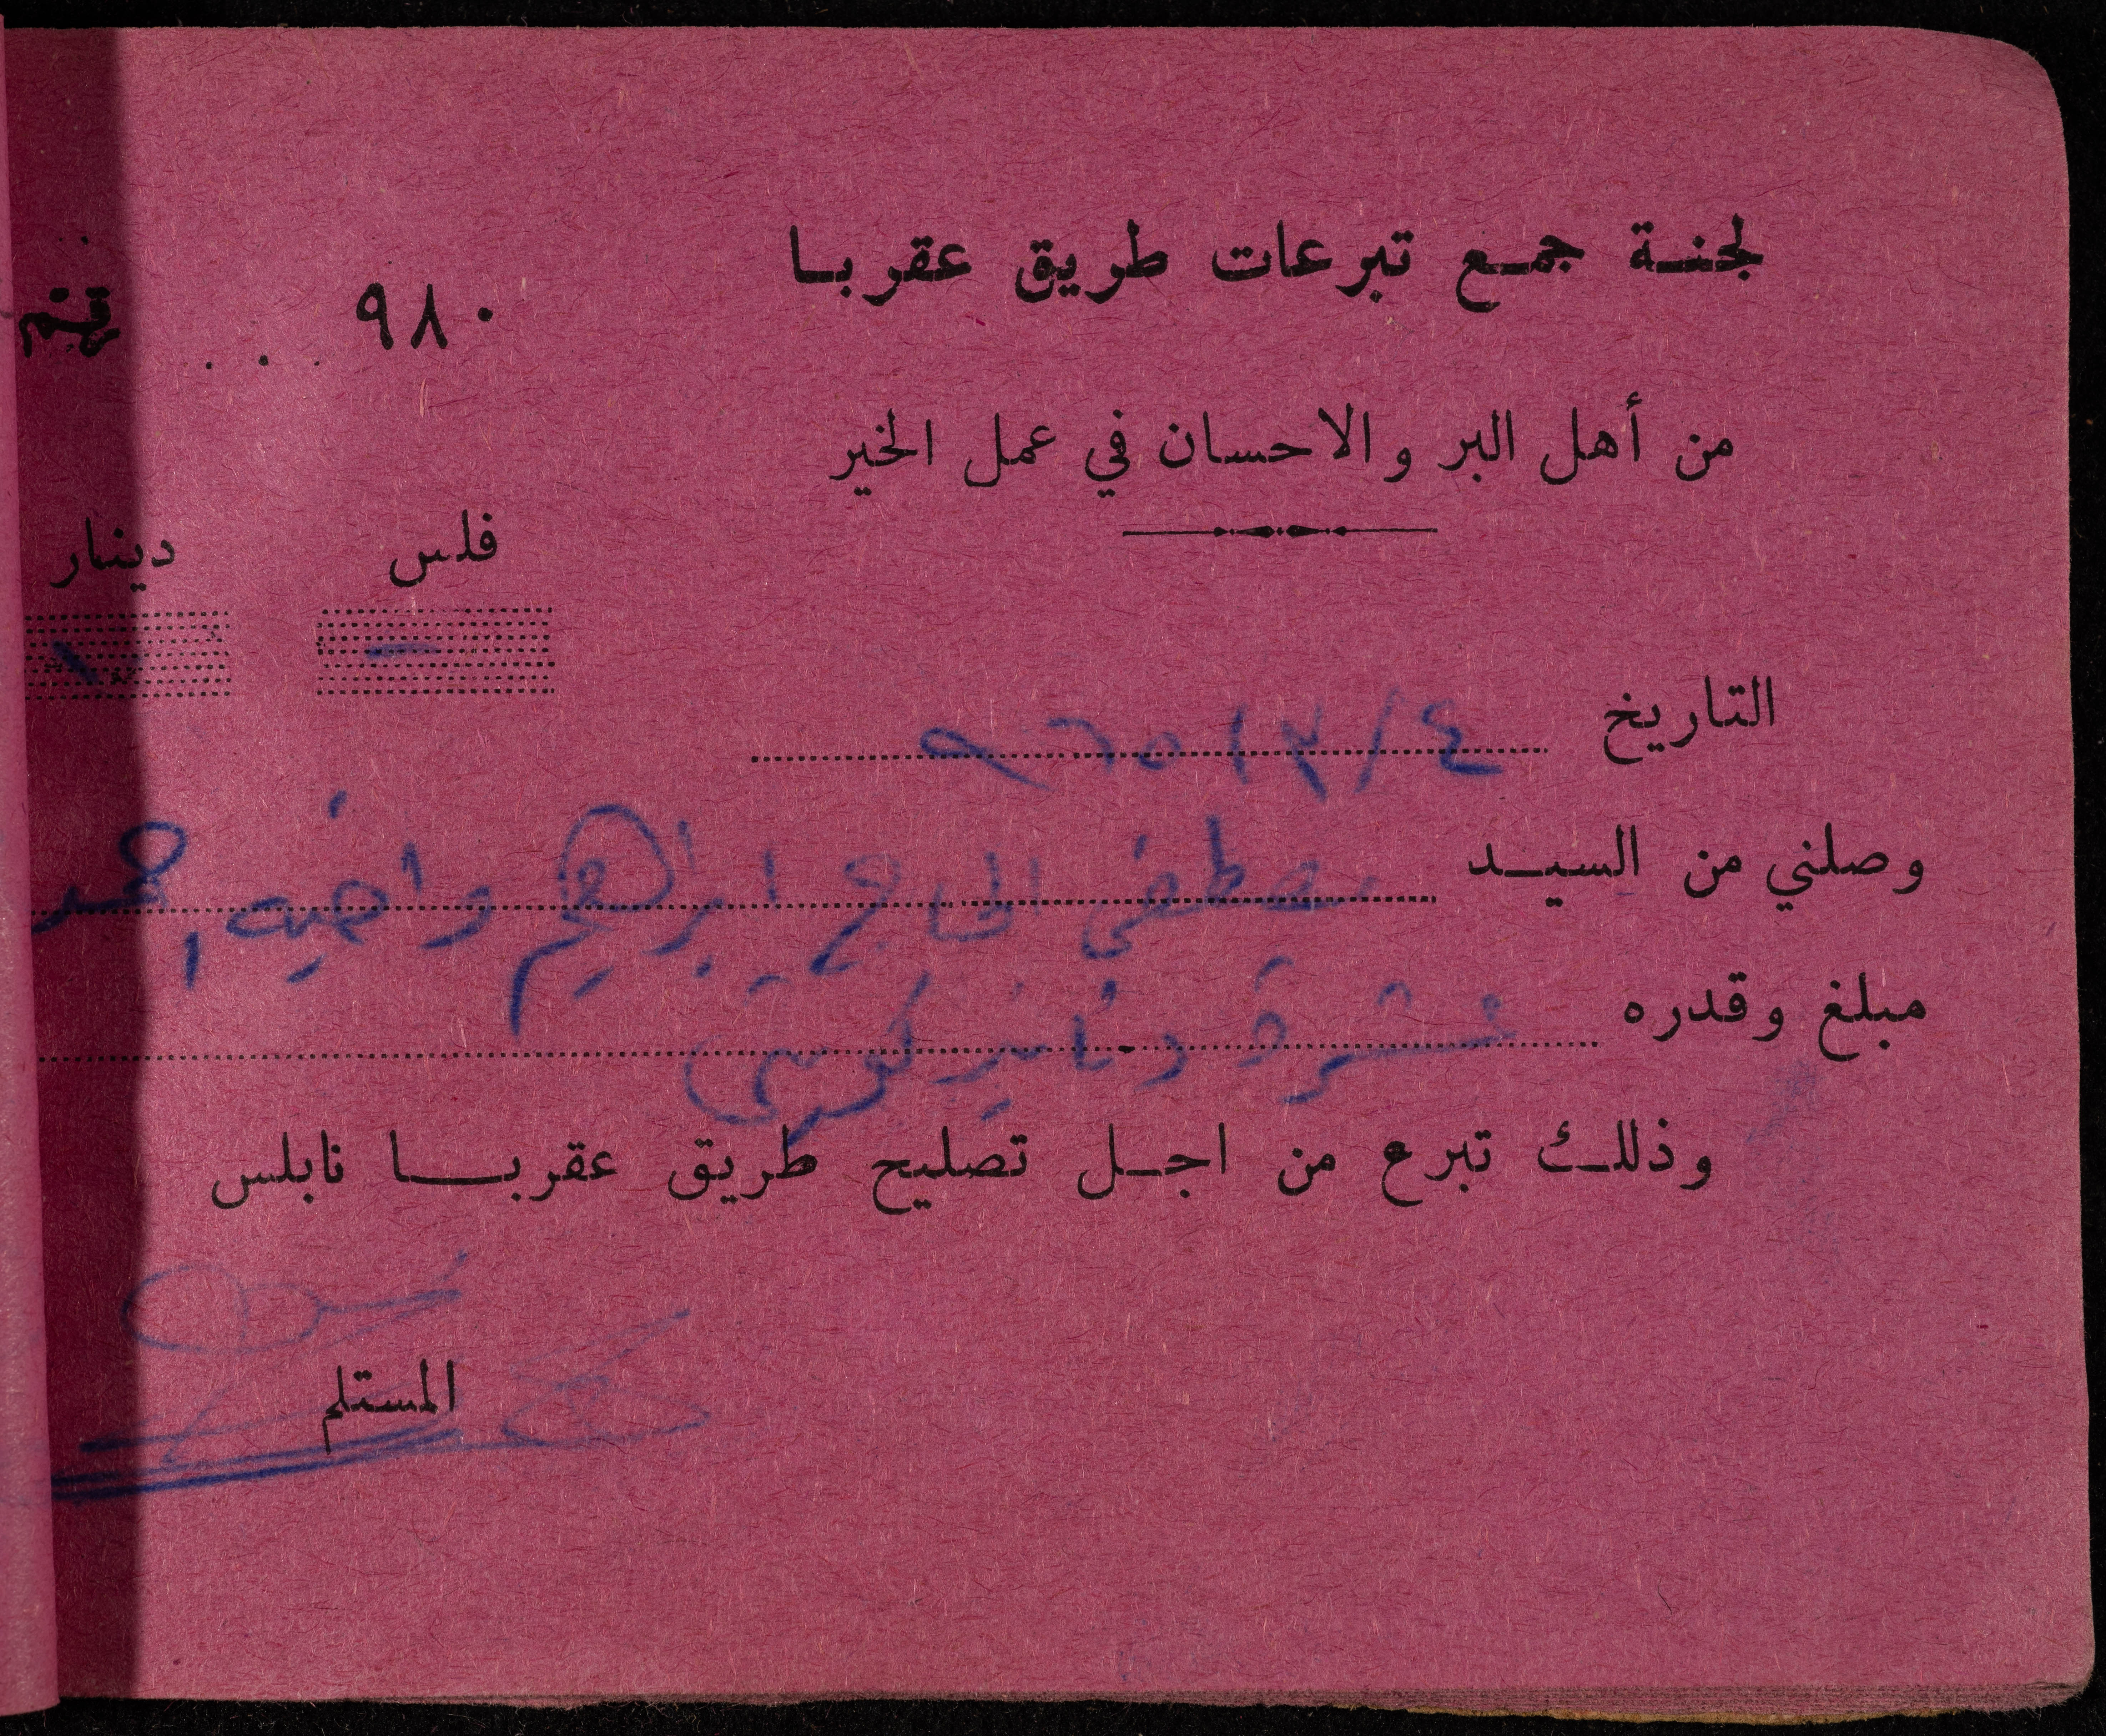 لجنة جمع تبرعات طريق عقربا
٩٨٠
من أهل البر والاحسان في عمل الخير
فلس دينار
التاريخ ٤/٣/٩٦٥
وصلني من السيد مصطفى الحاج ابراهيم واخيه محمد
مبلغ وقدره عشرة دنانير كويتي
وذلك تبرع من اجل تصليح طريق عقربا نابلس
المستلم